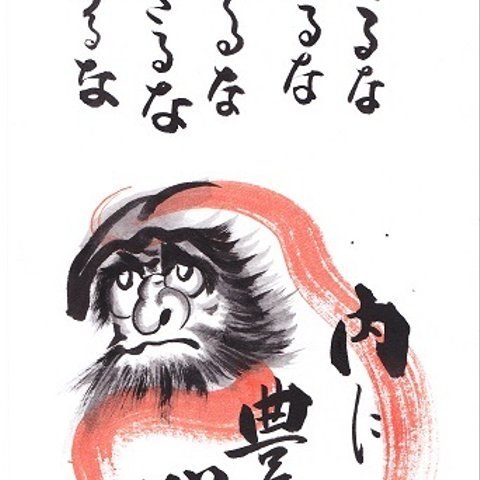 るな
るな
るな
さるな
るな
内に
豊